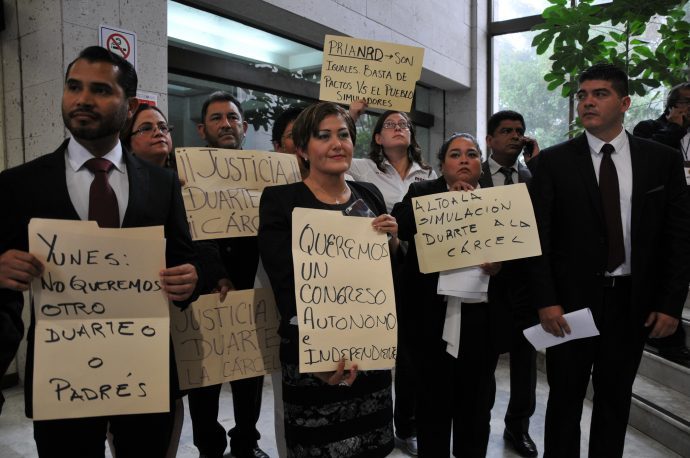 PRIANRD → SON
IGUALES. BASTA DE
PACTOS VS EL PUEBLO
SIMULADORES
¡¡JUSTICIA!!
DUARTE A LA
¡CÁRCEL
YUNES:
NO QUEREMOS
OTRO
DUARTE O
O
PADRÉS
JUSTICIA
DUARTE A
LA CÁRCEL
QUEREMOS
UN
CONGRESO
AUTONOMO
E
INDEPENDIENTE
ALTO A LA
SIMULACIÓN
DUARTE A LA
CÁRCEL